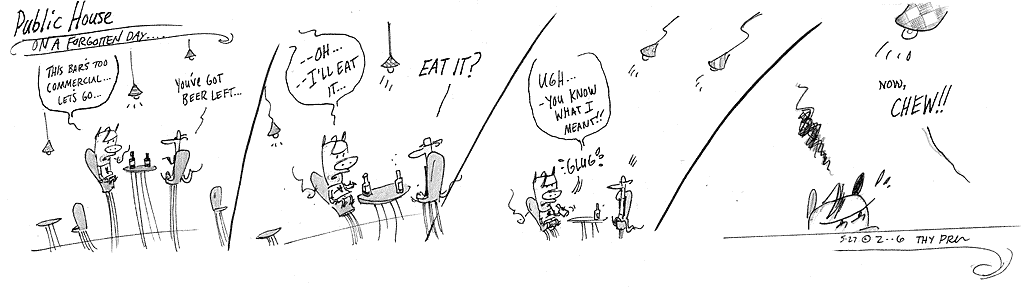 Public House
ON A FORGOTTEN DAY....
THIS BAR'S TOO
COMMERCIAL...
LET'S GO...
YOU'VE GOT
BEER LEFT...
--OH...
--I'LL EAT
IT...
EAT IT?
UGH...
-YOU KNOW
WHAT I
MEANT!!
GLUG?
NOW,
CHEW!!
5-27 © 2..6 THY